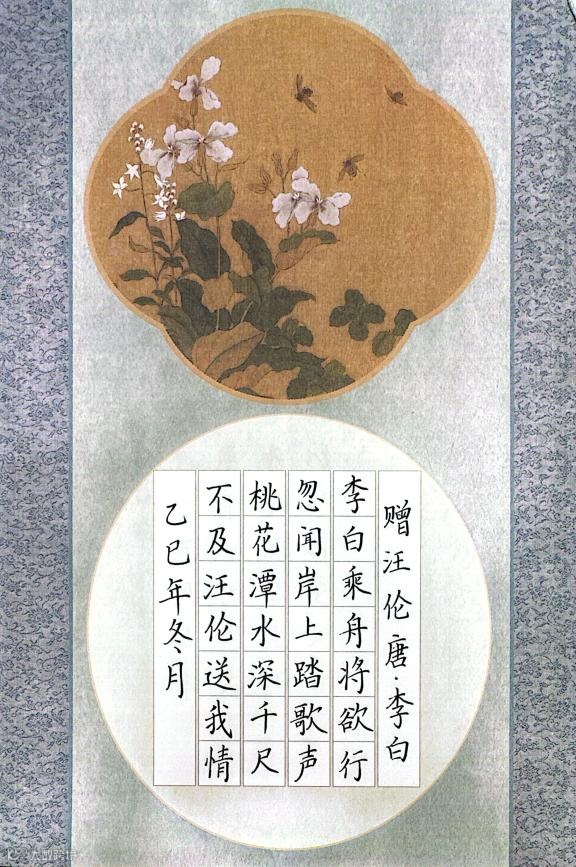 赠汪伦 唐·李白
李白乘舟将欲行
忽闻岸上踏歌声
桃花潭水深千尺
不及汪伦送我情
乙巳年冬月
大数跨境